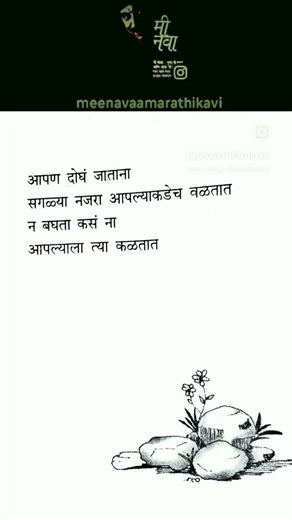 मी
नवा
meenavaamarathikavi
आपण दोघं जाताना
सगळ्या नजरा आपल्याकडेच वळतात
न बघता कसं ना
आपल्याला त्या कळतात